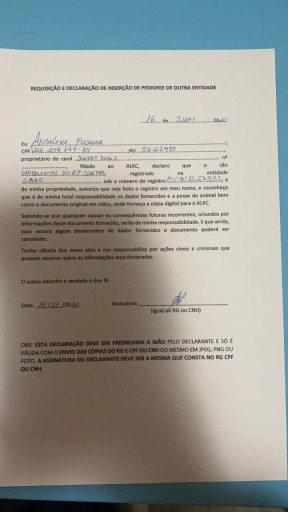 REQUISIÇÃO E DECLARAÇÃO DE INSERÇÃO DE PEDIGREE DE OUTRA ENTIDADE
16 de
Eu
CPF RG
proprietário do canil nº
filiado ao ALKC, declaro que o cão
registrado na entidade
sob o número de registro é
de minha propriedade, autorizo que seja feito o registro em meu nome, e reconheço
que é de minha total responsabilidade os dados fornecidos e a posse do animal bem
como o documento original em mãos, onde forneço a cópia digital para o ALKC.
Sabendo-se que quaisquer causas ou consequências futuras recorrentes, oriundos por
informações deste documento fornecido, serão de minha responsabilidade. E que ainda,
caso ocorra algum desencontro de dados fornecidos o documento poderá ser
cancelado.
Tenho ciência dos meus atos e me responsabilizo por ações cíveis e criminais que
possam recorrer sobre as informações aqui declaradas.
O acima descrito é verdade e dou fé
Data: Assinatura:
(Igual ao RG ou CNH)
OBS: ESTA DECLARAÇÃO DEVE SER PREENCHIDA A MÃO PELO DECLARANTE E SÓ É
VÁLIDA COM O ENVIO DAS CÓPIAS DO RG E CPF OU CNH DO MESMO EM JPEG, PNG OU
FOTO. A ASSINATURA DO DECLARANTE DEVE SER A MESMA QUE CONSTA NO RG CPF
OU CNH.